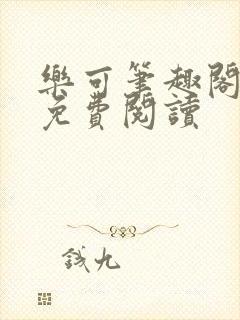 樂可筆趣閣
免費閱讀
錢九